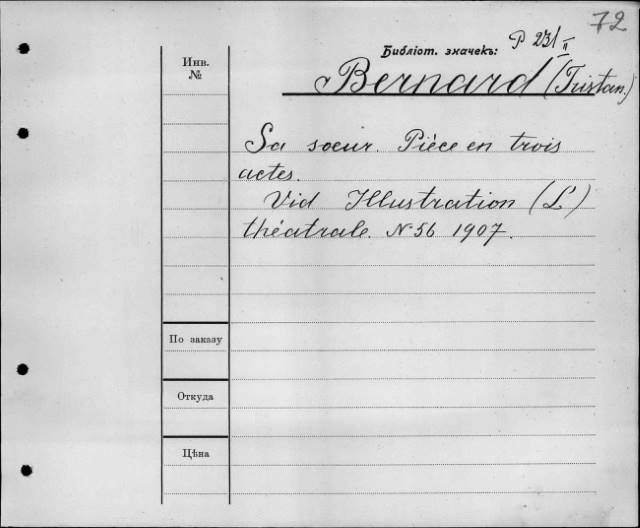 72
Библіот. значекъ: P 231 II
Инв.
№
Bernard (Tristan.)
Sa soeur. Pièce en trois
actes.
Vid Illustration (L')
théatrale. N. 56 1907.
По заказу
Откуда
Цѣна